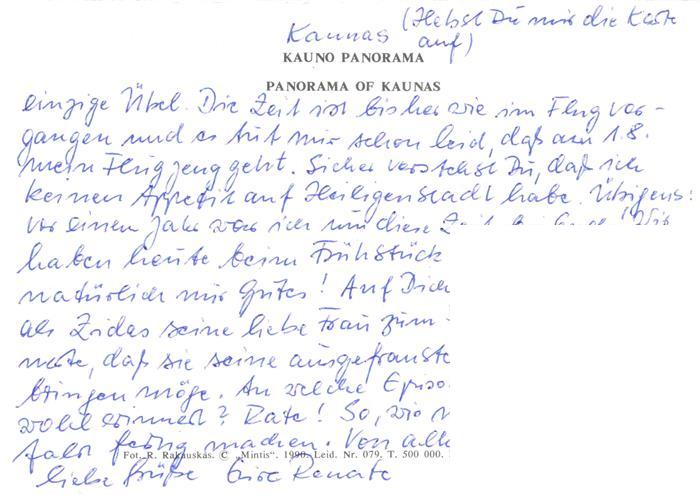 Kaunas (Hebst Du mir die Karte
auf)
KAUNO PANORAMA
PANORAMA OF KAUNAS
einzige Übel. Die Zeit ist bisher wie im Flug ver-
gangen und es tut mir schon leid, daß am 1.8.
mein Flugzeug geht. Sicher verstehst Du, daß ich
keinen Appetit auf Heiligenstadt habe. Übigens:
Vor einem Jahr war ich um diese Zeit
haben heute beim Frühstück
natürlich nur Gutes! Auf Dich
als Zidas seine liebe Frau zum
nete, daß sie seine ausgefranste
bringen möge. An welche Episo
wohl erinnert? Rate! So, wie
fahrt fertig machen. Von alle
liebe Grüße Eure Renate
Fot. R. Rakauskas. © „Mintis“. 1990. Leid. Nr. 079. T. 500 000.